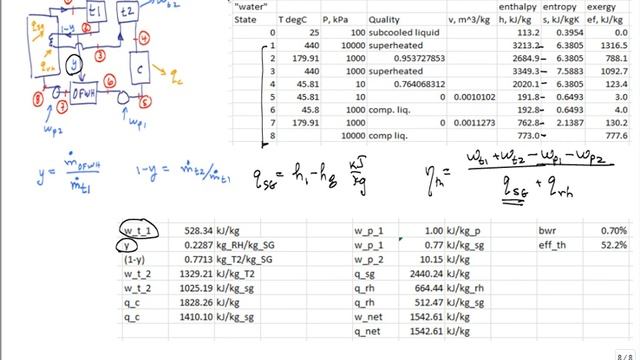 "water"
enthalpy entropy exergy
State T degC P, kPa Quality v, m^3/kg h, kJ/kg s, kJ/kgK ef, kJ/kg
0 25 100 subcooled liquid 113.2 0.3954 0.0
1 440 10000 superheated 3213.2 6.3805 1316.5
2 179.91 1000 0.953727853 2684.9 6.3805 788.1
3 440 1000 superheated 3349.3 7.5883 1092.7
4 45.81 10 0.764068312 2020.1 6.3805 123.4
5 45.81 10 0 0.0010102 191.8 0.6493 3.0
6 45.8 1000 comp. liq. 192.8 0.6493 4.0
7 179.91 1000 0 0.0011273 762.8 2.1387 130.2
8 10000 comp liq. 773.0 777.6
t1 t2
1-y
y
q_rh
C
q_c
OFWH
w_p2 w_p1
y = ṁ_OFWH / ṁ_t1
1-y = ṁ_t2/ṁ_t1
q_SG = h_1 - h_8 kJ/kg
η_th = w_t1 + w_t2 - w_p1 - w_p2 / q_SG + q_rh
w_t_1 528.34 kJ/kg w_p_1 1.00 kJ/kg_p bwr 0.70%
y 0.2287 kg_RH/kg_SG w_p_1 0.77 kJ/kg_sg eff_th 52.2%
(1-y) 0.7713 kg_T2/kg_SG w_p_2 10.15 kJ/kg
w_t_2 1329.21 kJ/kg_T2 q_sg 2440.24 kJ/kg
w_t_2 1025.19 kJ/kg_sg q_rh 664.44 kJ/kg_rh
q_c 1828.26 kJ/kg q_rh 512.47 kJ/kg_sg
q_c 1410.10 kJ/kg_sg w_net 1542.61 kJ/kg
q_net 1542.61 kJ/kg
8 / 8